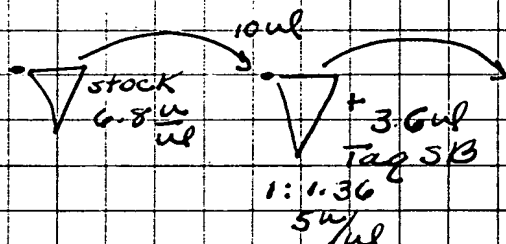 10ul
stock
6.8 u/ul
+ 3.6ul
Taq SB
1:1.36
5u/ul